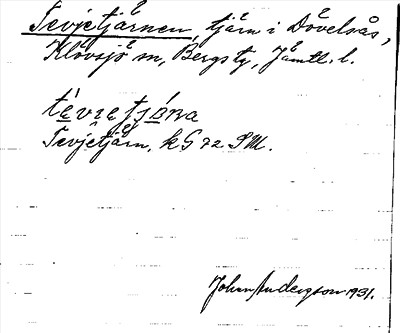 Tevjetjärnen, tjärn i Dövelsås,
Klövsjö sn, Bergs tg, Jämtl. l.
Tevjetjärn, k G 72 SM.
Johan Anderson 1931.